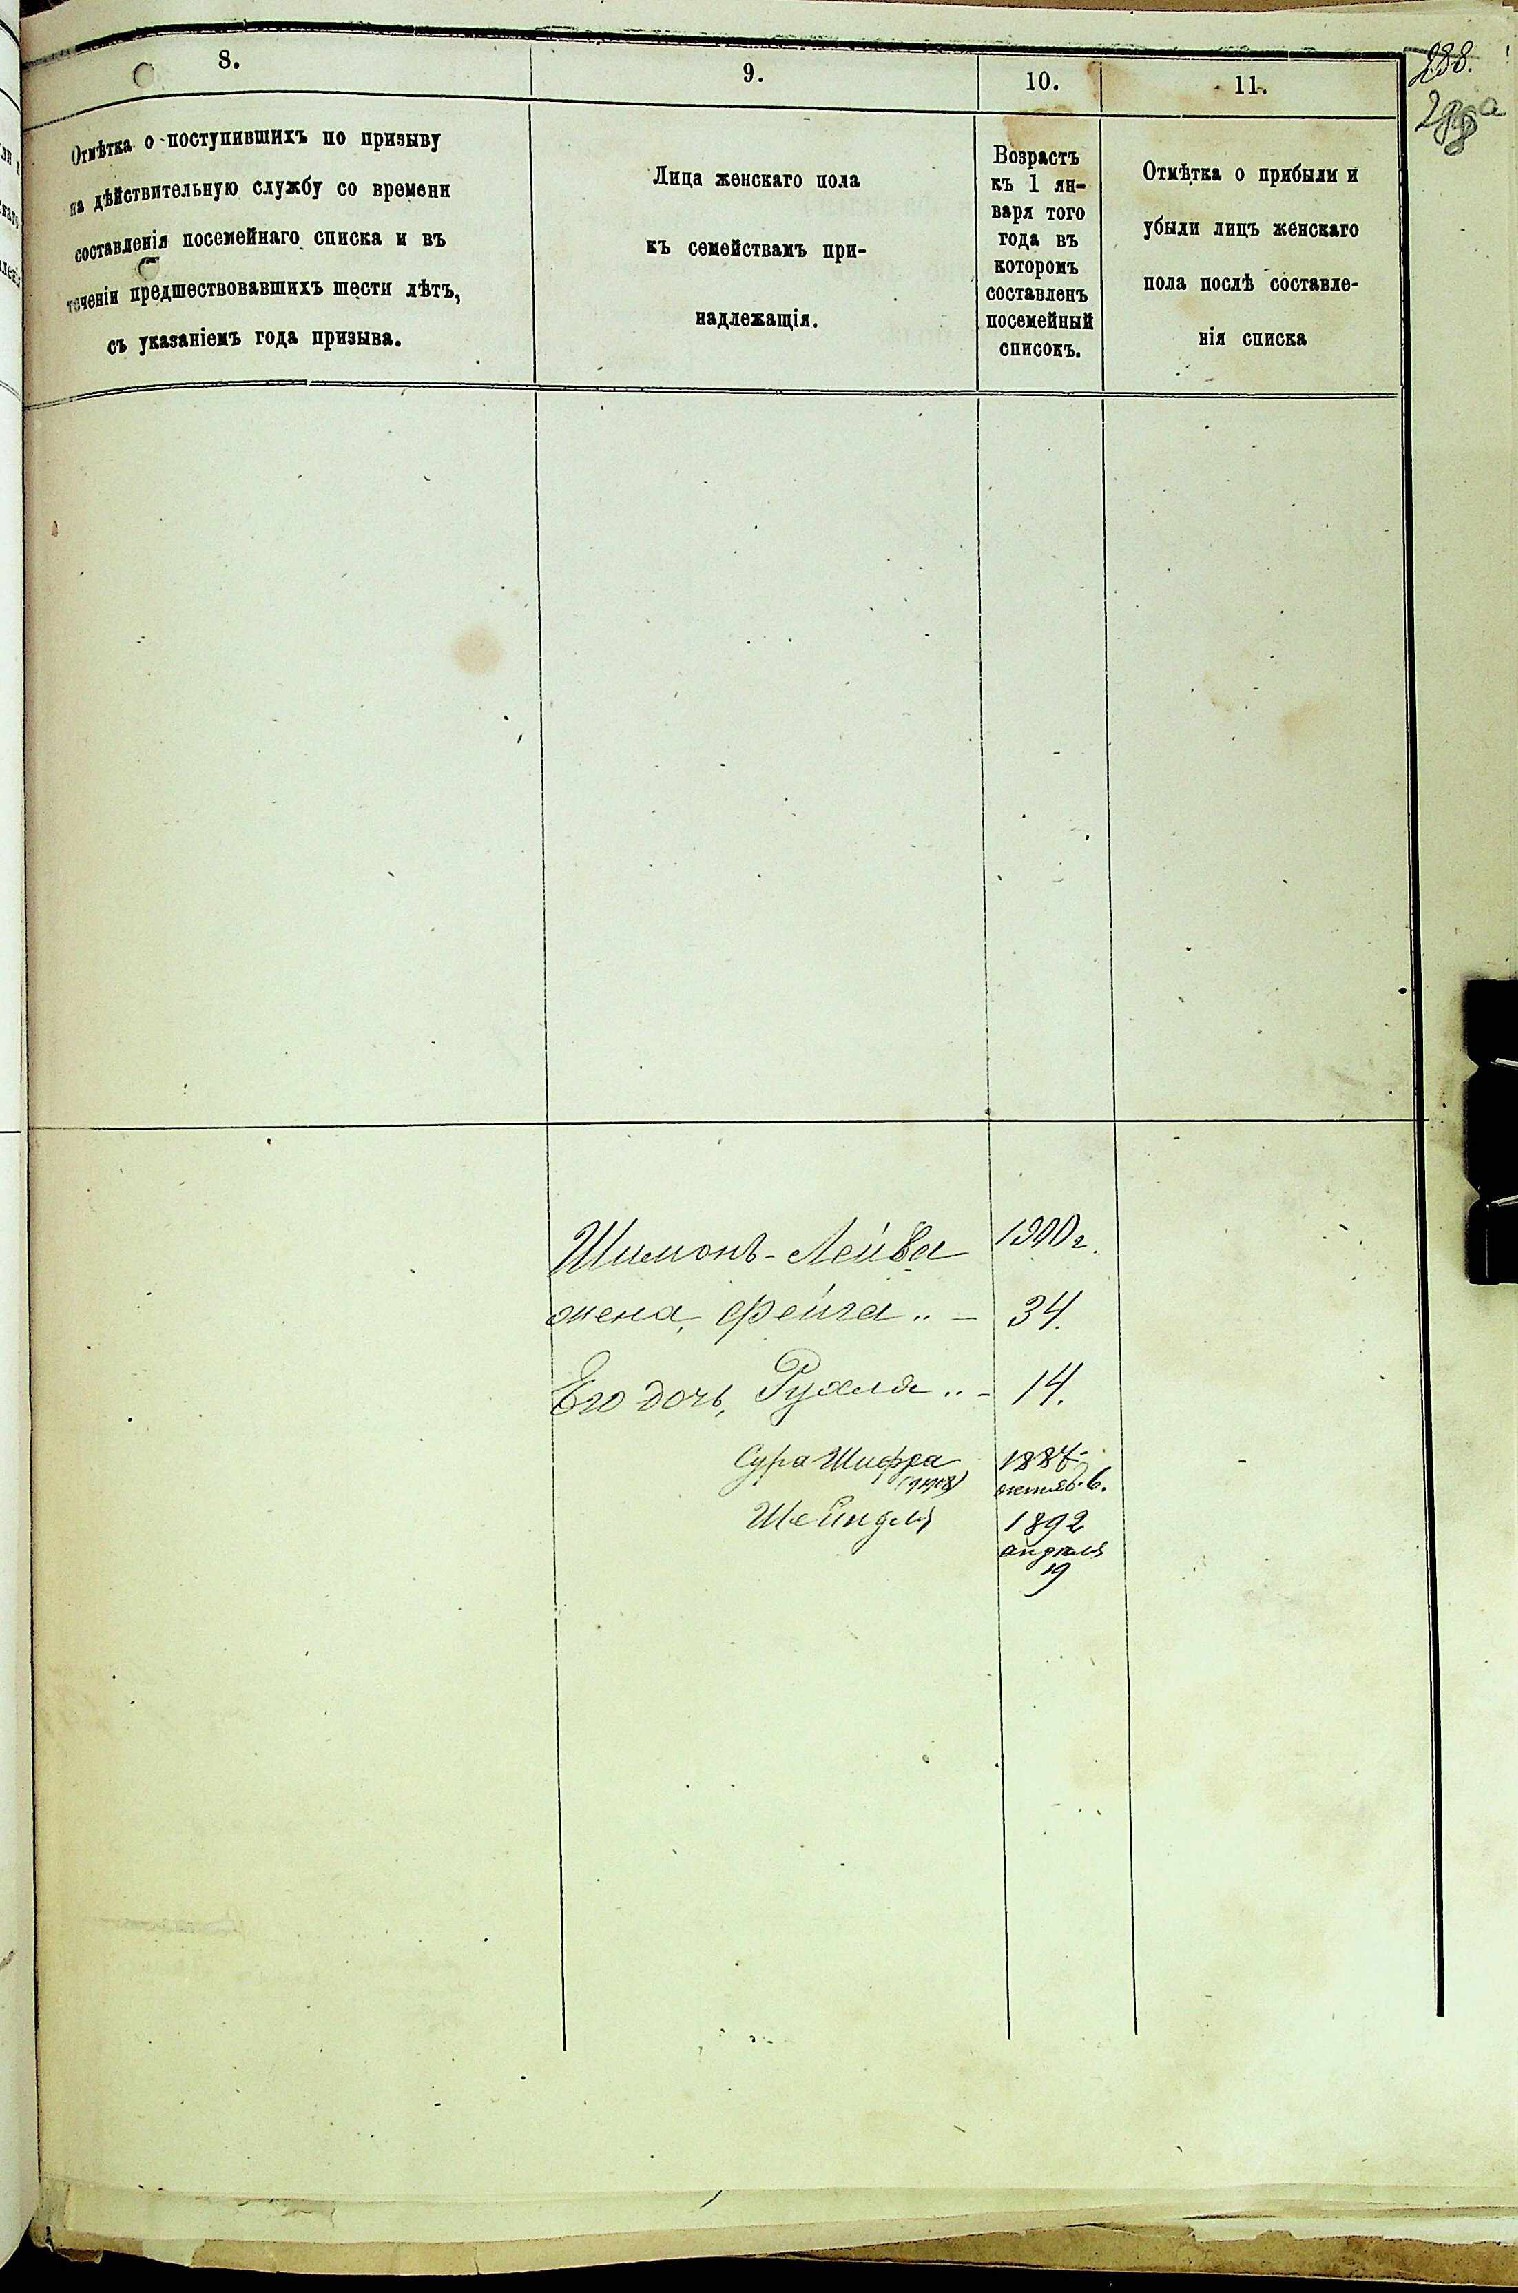 288.
8.
9.
10.
11.
Отмѣтка о поступившихъ по призыву
на дѣйствительную службу со времени
составленія посемейнаго списка и въ
теченіи предшествовавшихъ шести лѣтъ,
съ указаніемъ года призыва.
Лица женскаго пола
къ семействамъ при-
надлежащія.
Возрастъ
къ 1 ян-
варя того
года въ
которомъ
составленъ
посемейный
списокъ.
Отмѣтка о прибыли и
убыли лицъ женскаго
пола послѣ составле-
нія списка
Шимонъ-Лейба 1900 г.
жена, Фейга „ — 34.
Его дочь, Рухля „ - 14.
Сура Шифра
октяб. 6.
Шейндля 1892
апреля
19